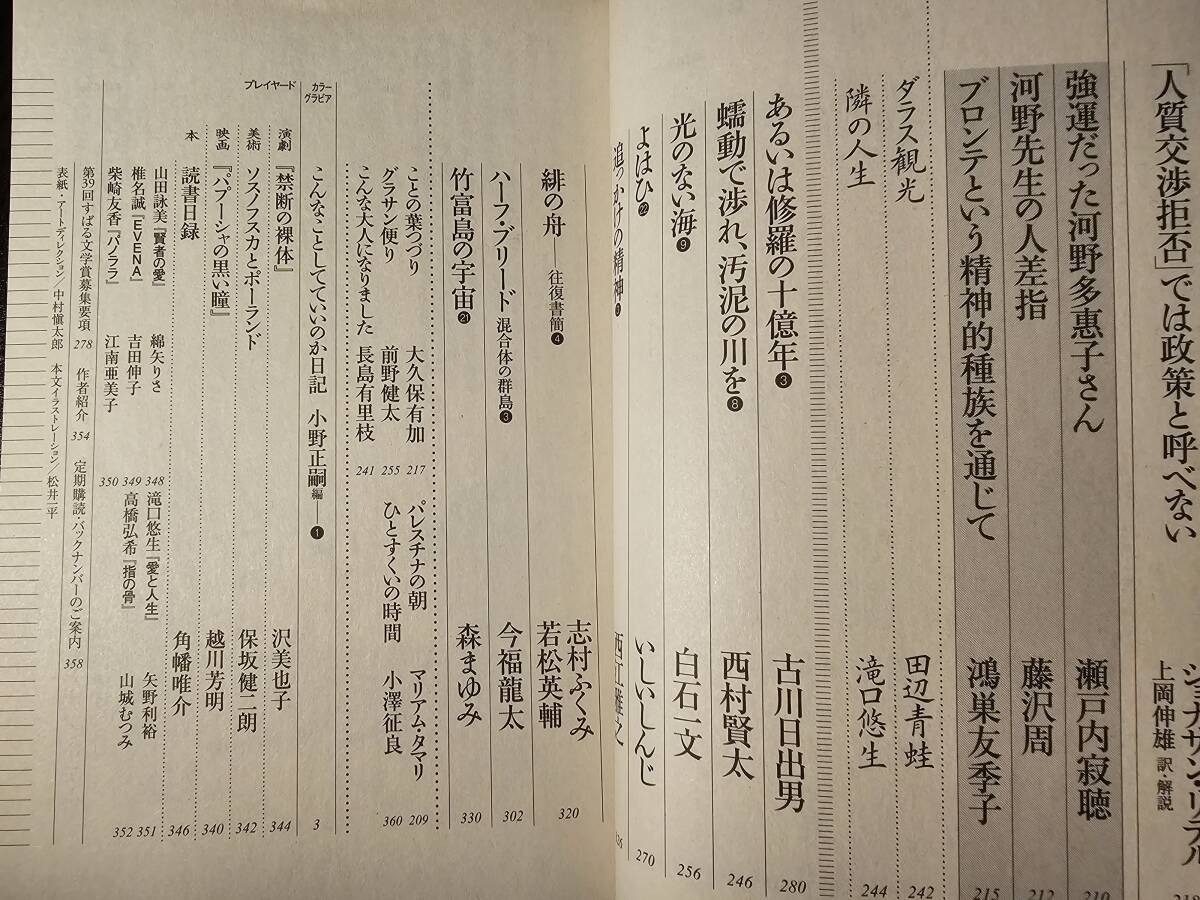 「人質交渉拒否」では政策と呼べない
ジョナサン・リテル
上岡伸雄 訳・解説
強運だった河野多惠子さん 瀬戸内寂聴 210
河野先生の人差指 藤沢周 212
ブロンテという精神的種族を通じて 鴻巣友季子 215
ダラス観光 田辺青蛙 242
隣の人生 滝口悠生 244
あるいは修羅の十億年❸ 古川日出男 280
蠕動で渉れ、汚泥の川を❽ 西村賢太 246
光のない海❾ 白石一文 256
よはひ㉒ いしいしんじ 270
追っかけの精神 西江雅之
緋の舟――往復書簡❹ 志村ふくみ 若松英輔 320
ハーフ・ブリード 混合体の群島❸ 今福龍太 302
竹富島の宇宙㉑ 森まゆみ 330
ことの葉つづり 大久保有加 217
パレスチナの朝 マリアム・タマリ 209
グラサン便り 前野健太 255
ひとすくいの時間 小澤征良 360
こんな大人になりました 長島有里枝 241
カラーグラビア
こんなことしてていいのか日記 小野正嗣 編――❶ 3
プレイヤード
演劇 『禁断の裸体』 沢美也子 344
美術 ソスノフスカとポーランド 保坂健二朗 342
映画 『パプーシャの黒い瞳』 越川芳明 340
本 読書日録 角幡唯介 346
山田詠美『賢者の愛』 綿矢りさ 348
滝口悠生『愛と人生』 矢野利裕 351
椎名誠『EVENA』 吉田伸子 349
高橋弘希『指の骨』 山城むつみ 352
柴崎友香『パノララ』 江南亜美子 350
第39回すばる文学賞募集要項 278 作者紹介 354 定期購読・バックナンバーのご案内 358
表紙 アートディレクション/中村愼太郎 本文イラストレーション/松井一平